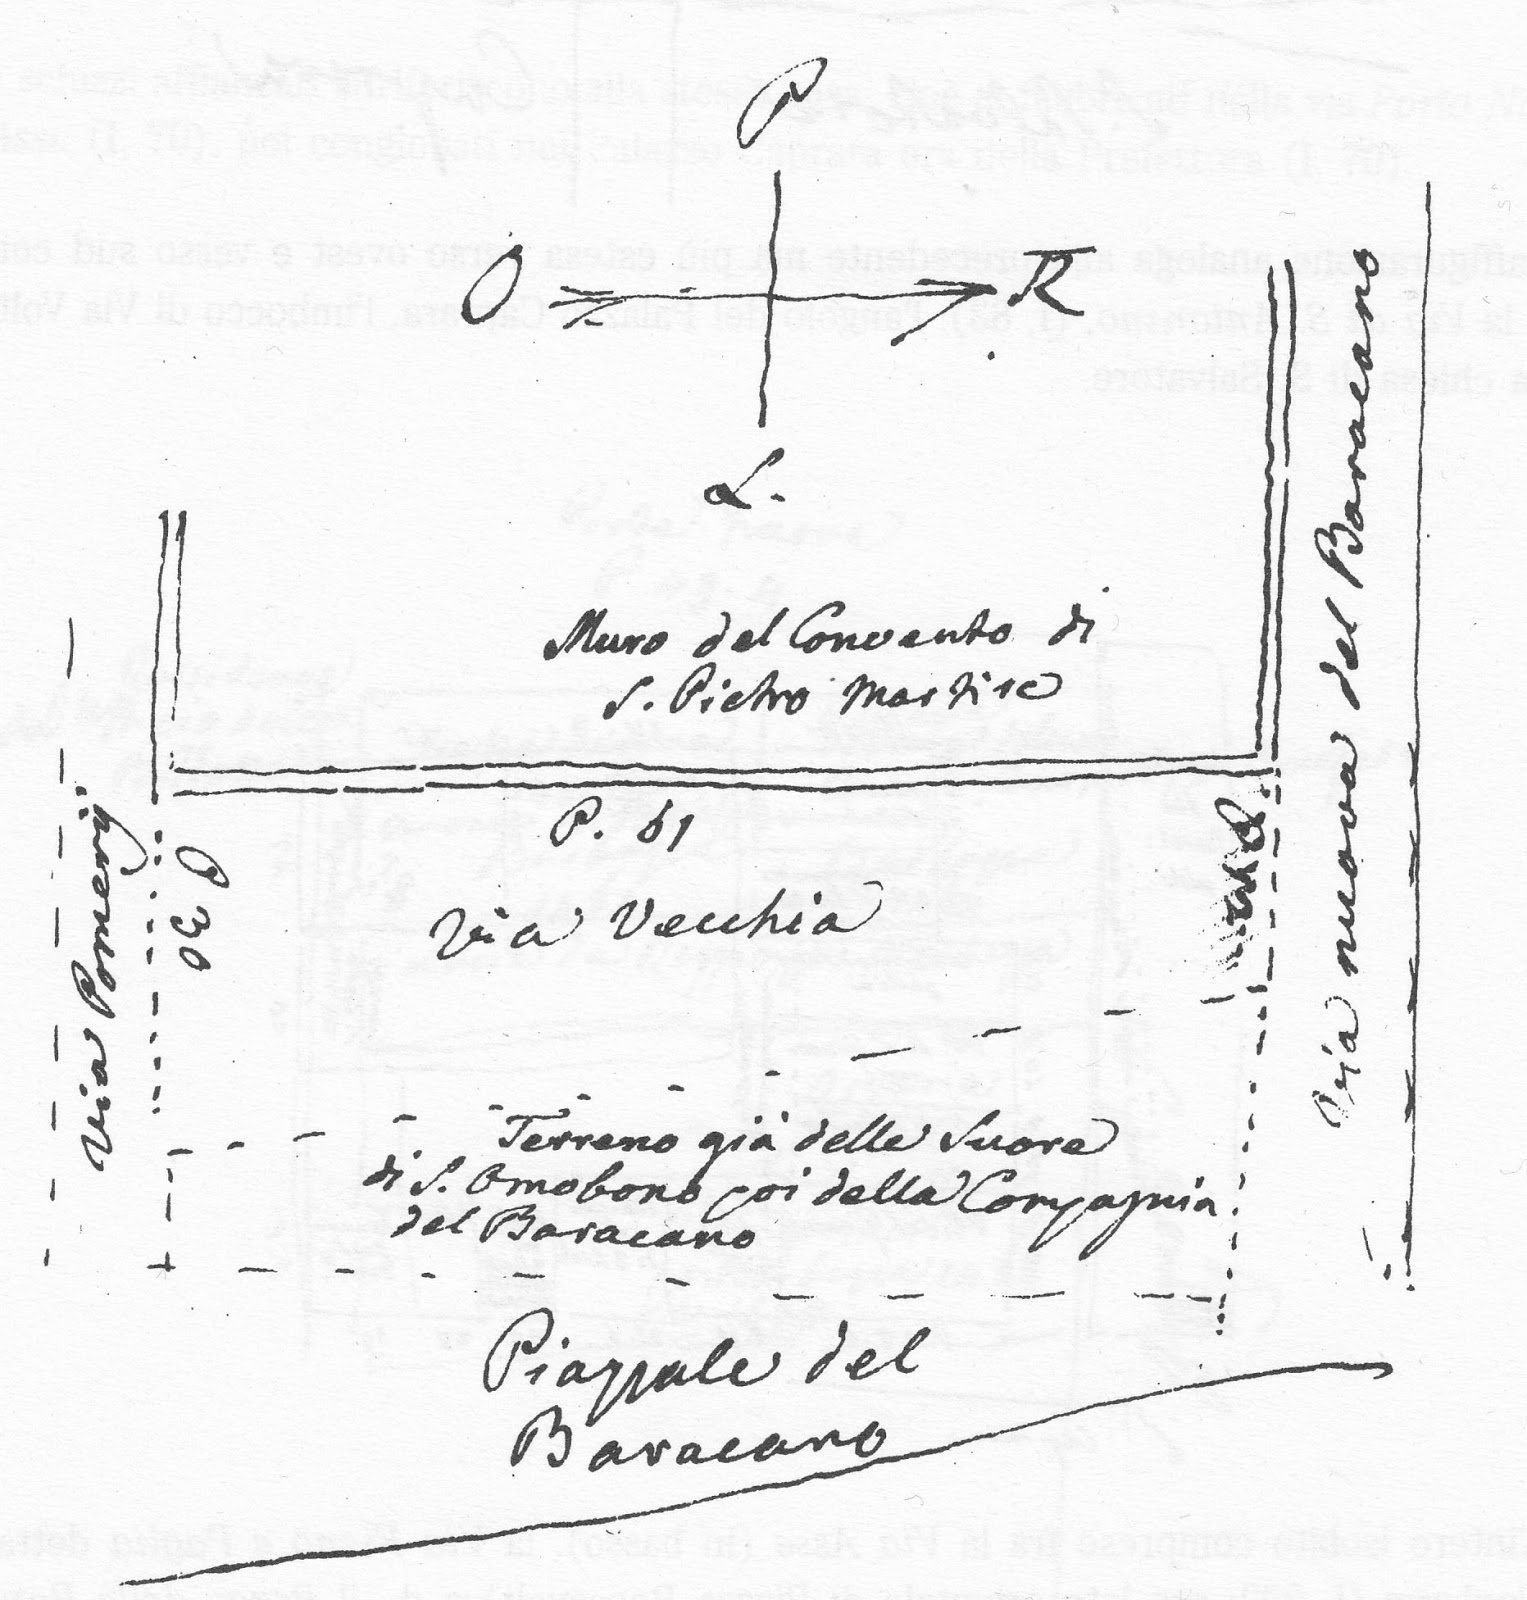 P
O
TR
L.
Muro del Convento di
S. Pietro Martire
P. 61
Via Vecchia
Via Pomerij
P
Via nuova del Baracano
Terreno già delle Suore
di S. Omobono poi della Compagnia
del Baracano
Piazzale del
Baracano